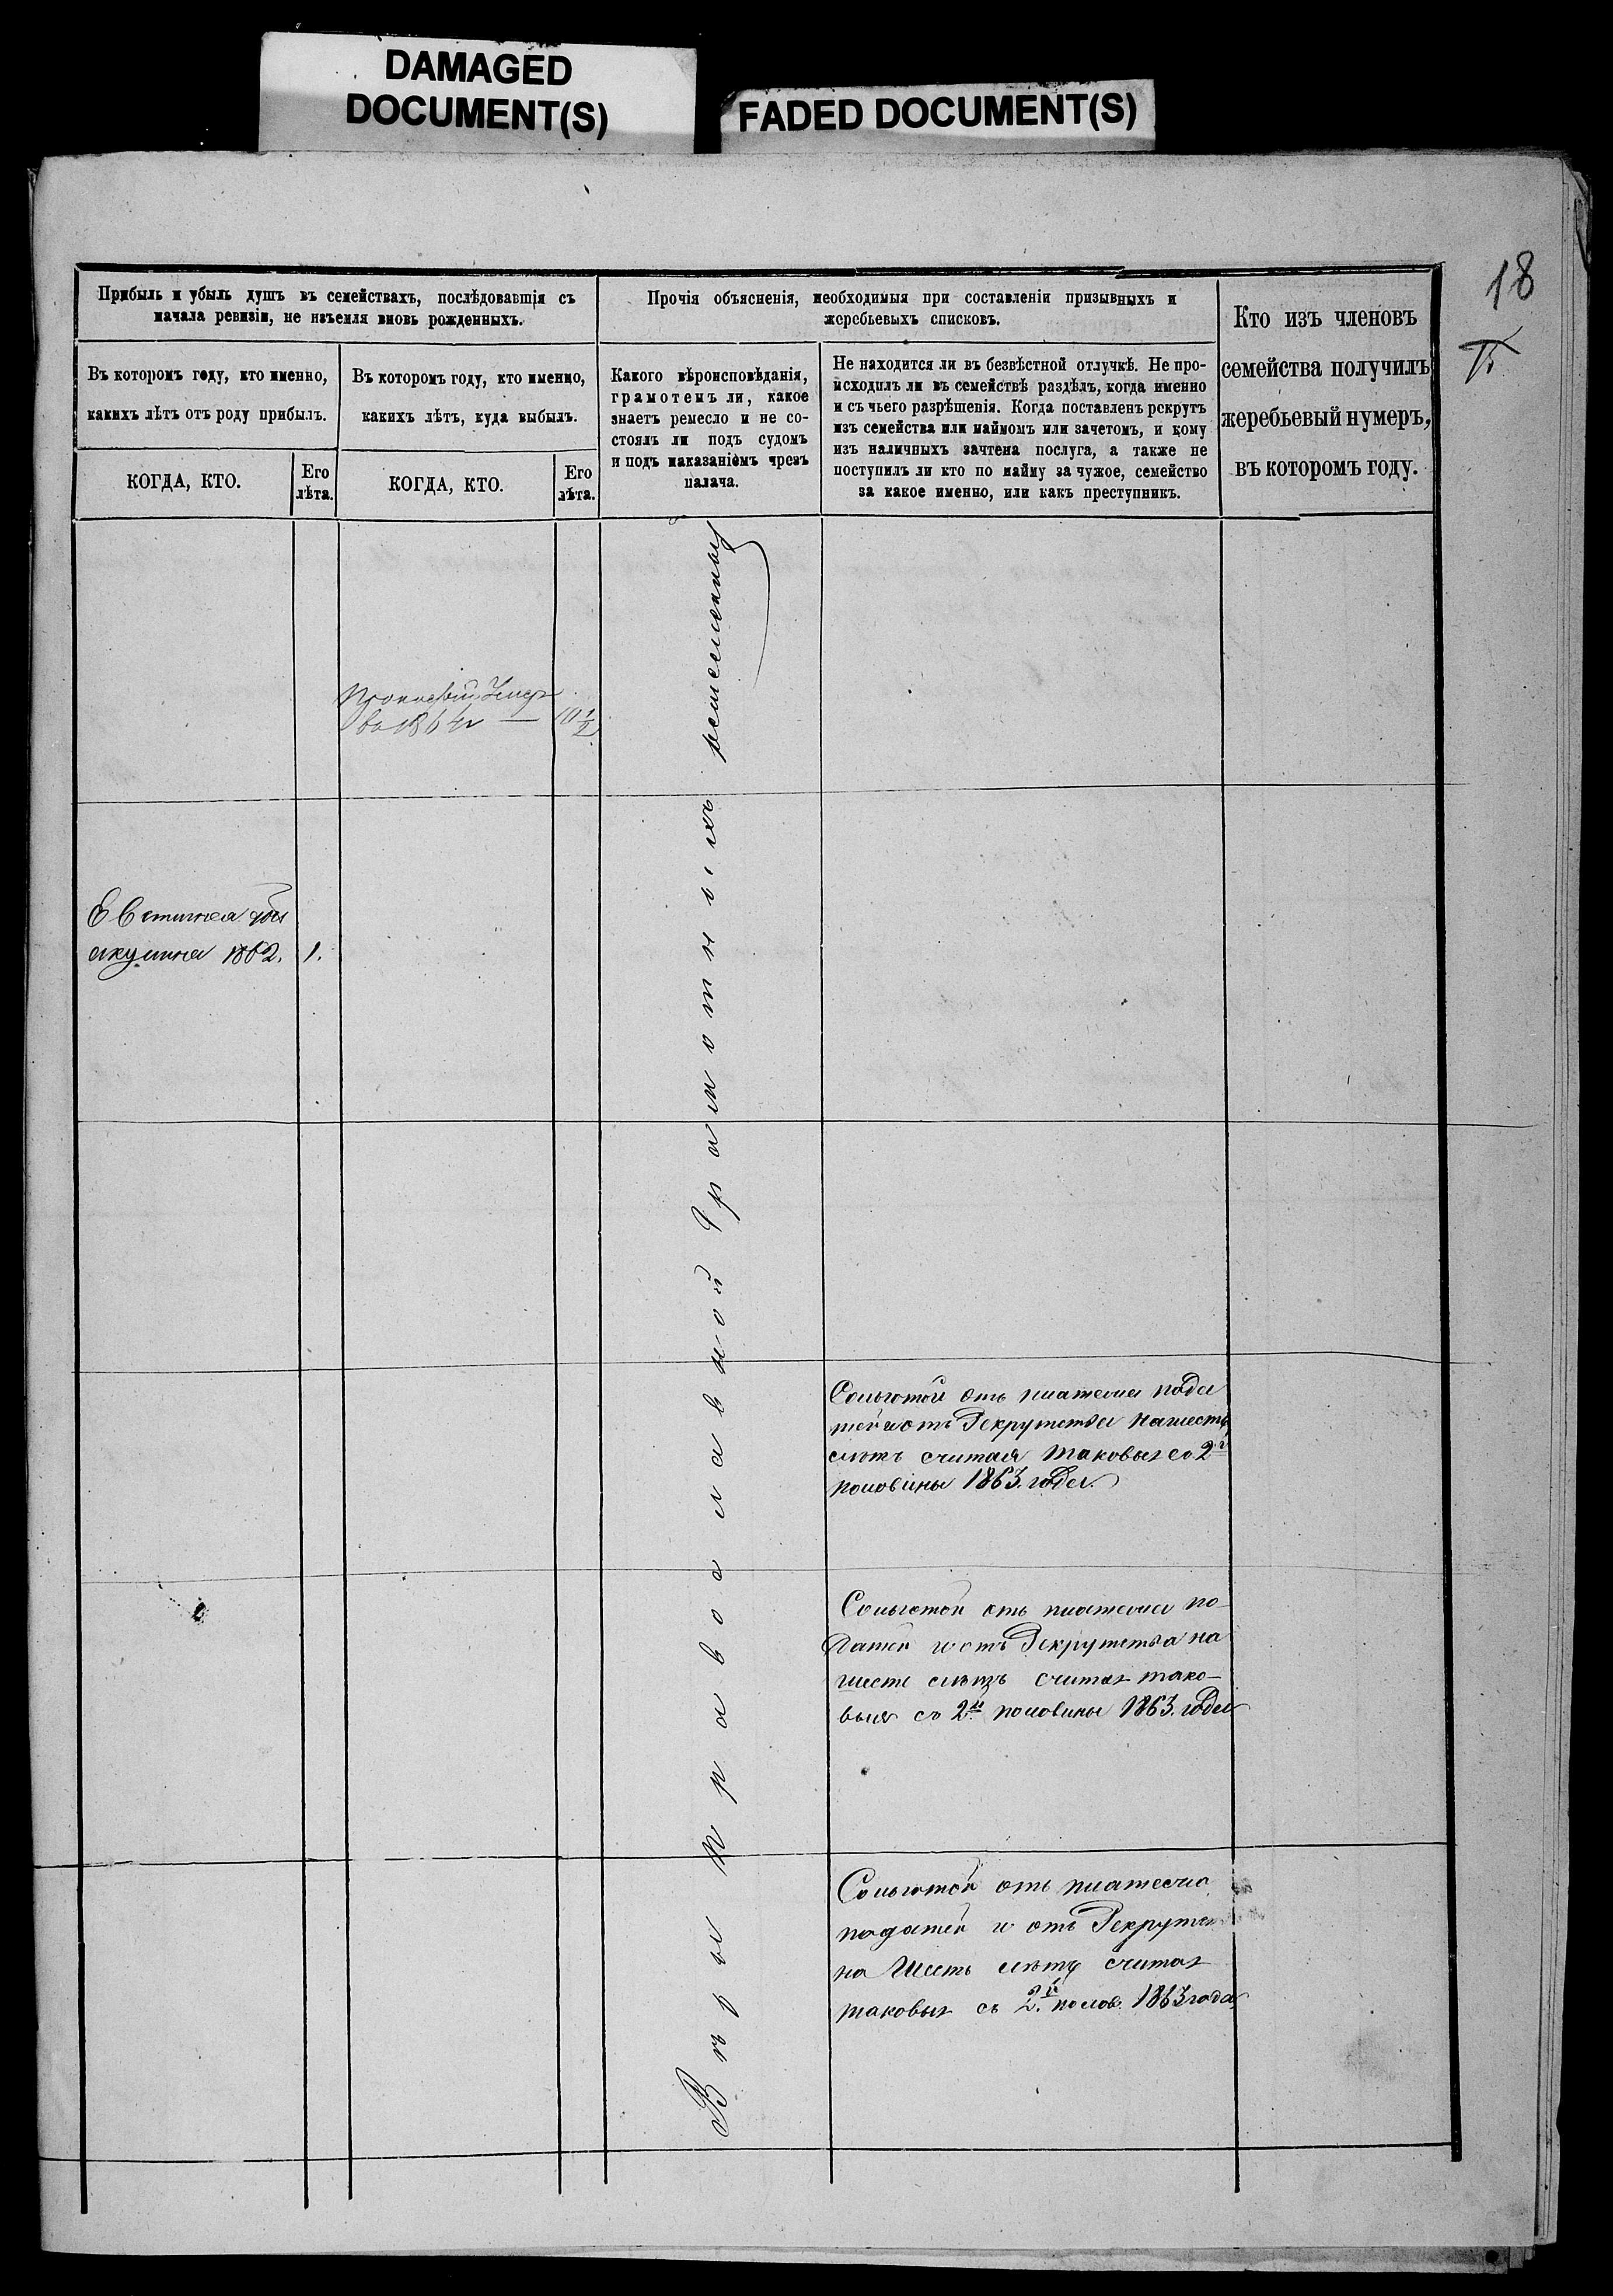 DAMAGED
DOCUMENT(S)
FADED DOCUMENT(S)
18
Прибыль и убыль душъ въ семействахъ, послѣдовавшія съ
начала ревизіи, не изъемля вновь рожденныхъ.
Въ которомъ году, кто именно,
какихъ лѣтъ отъ роду прибылъ.
КОГДА, КТО.
Его
лѣта.
Въ которомъ году, кто именно,
какихъ лѣтъ, куда выбылъ.
КОГДА, КТО.
Его
лѣта.
Прочія объясненія, необходимыя при составленіи призывныхъ и
жеребьевыхъ списковъ.
Какого вѣроисповѣданія,
грамотенъ ли, какое
знаетъ ремесло и не со-
стоялъ ли подъ судомъ
и подъ наказаніемъ чрезъ
палача.
Не находится ли въ безвѣстной отлучкѣ. Не про-
исходилъ ли въ семействѣ раздѣлъ, когда именно
и съ чьего разрѣшенія. Когда поставленъ рекрутъ
изъ семейства или наймомъ или зачетомъ, и кому
изъ наличныхъ зачтена послуга, а также не
поступилъ ли кто по найму за чужое, семейство
за какое именно, или какъ преступникъ.
Кто изъ членовъ
семейства получилъ
жеребьевый нумеръ,
въ которомъ году.
Прокофій Умеръ
во 1864 —
10 1/2
Евтинея
акулина 1862. 1.
Вѣры Православной Грамотныхъ
Сольготой отъ платежа пода
тей и отъ Рекрутства нашесть
лѣтъ считая таковыя со 2й
половины 1863. года.
Сольготой отъ платежа по-
датей и отъ Рекрутства на
шесть лѣтъ считая тако-
выя со 2й половины 1863. года
Сольготой отъ платежа
податей и отъ Рекрутст
на Шесть лѣтъ считая
таковыя съ 2й полов. 1863 года